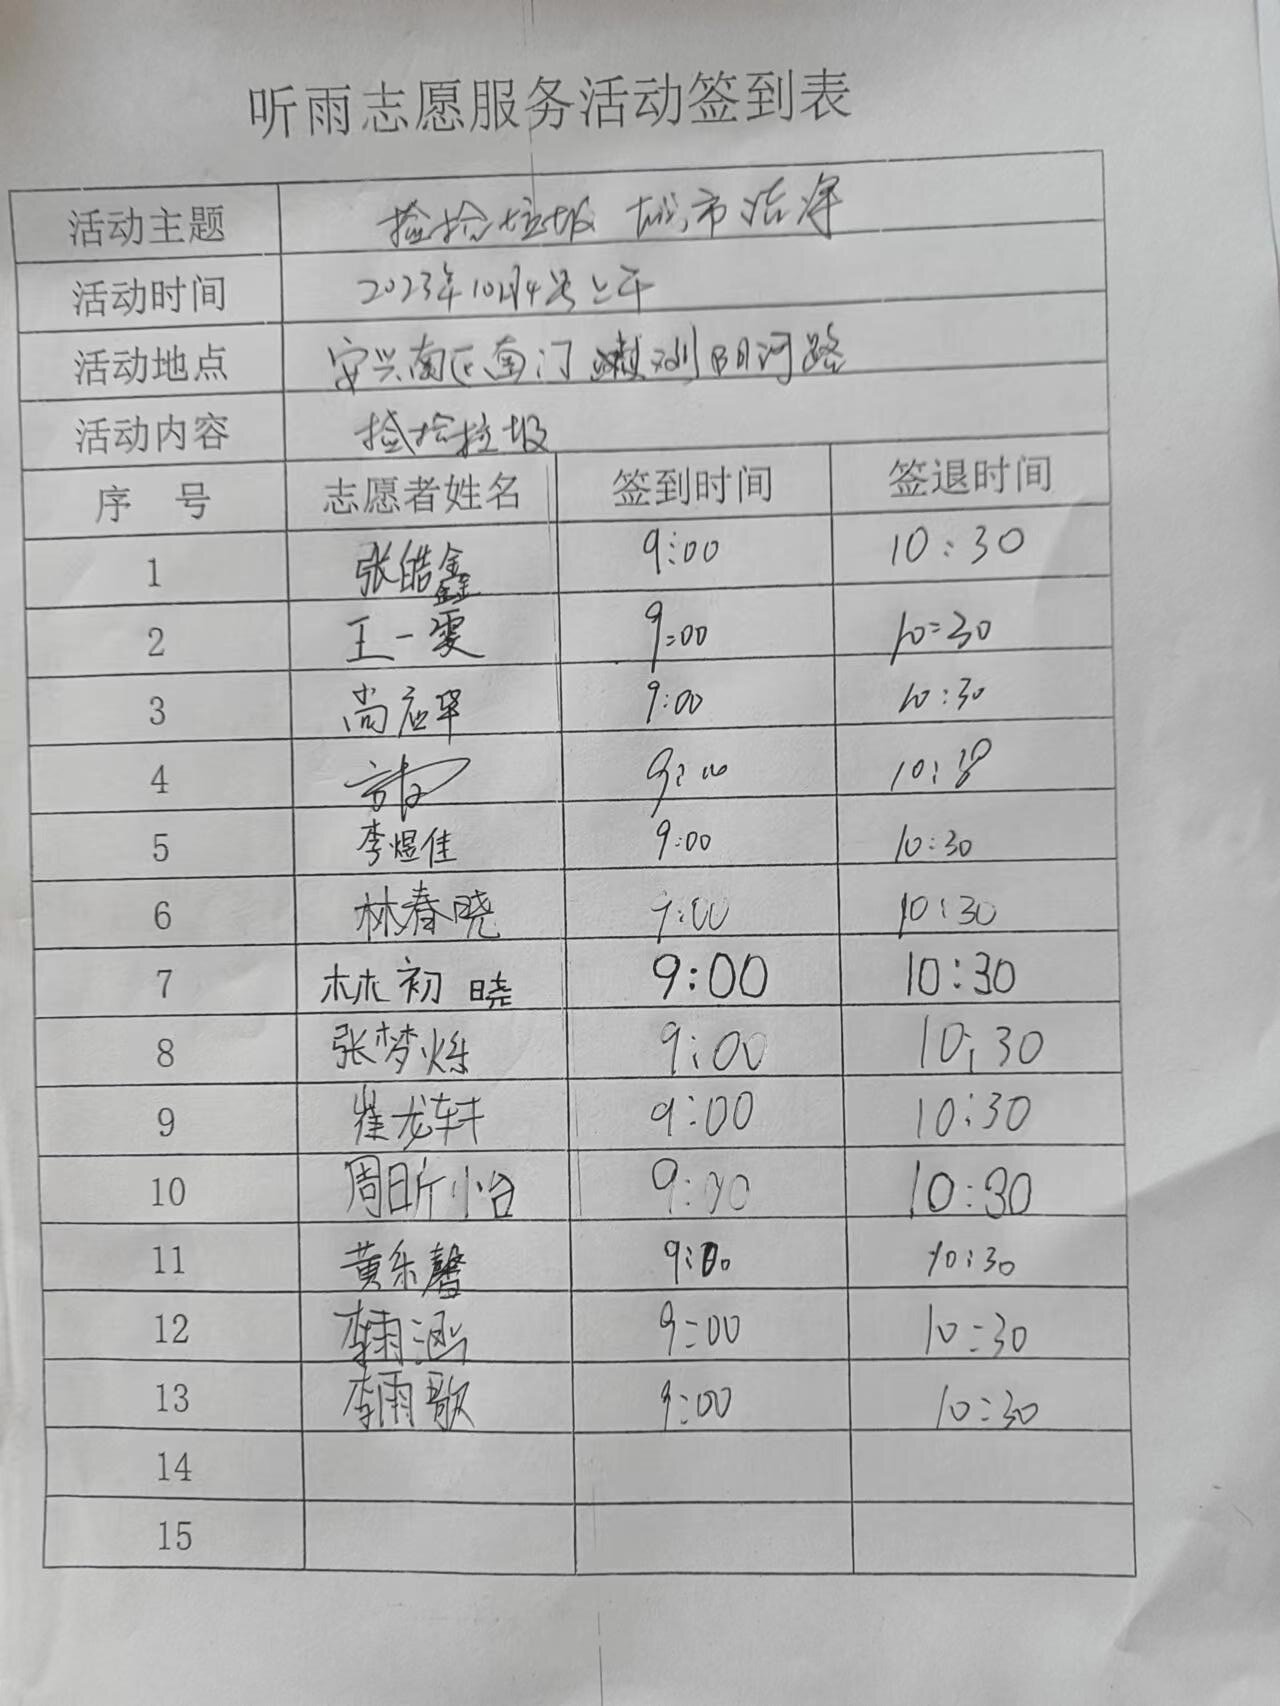 听雨志愿服务活动签到表
活动主题 捡拾垃圾 城市洁净
活动时间 2023年10月4号上午
活动地点 安兴南区南门 到明河路
活动内容 捡拾垃圾
序 号 志愿者姓名 签到时间 签退时间
1 张皓鑫 9:00 10:30
2 王一雯 9:00 10:30
3 尚应 9:00 10:30
4 9:00 10:30
5 李煜佳 9:00 10:30
6 林春晓 9:00 10:30
7 林初晓 9:00 10:30
8 张梦烁 9:00 10:30
9 崔龙轩 9:00 10:30
10 周昕怡 9:00 10:30
11 黄乐馨 9:00 10:30
12 李雨涵 9:00 10:30
13 李雨歌 9:00 10:30
14
15